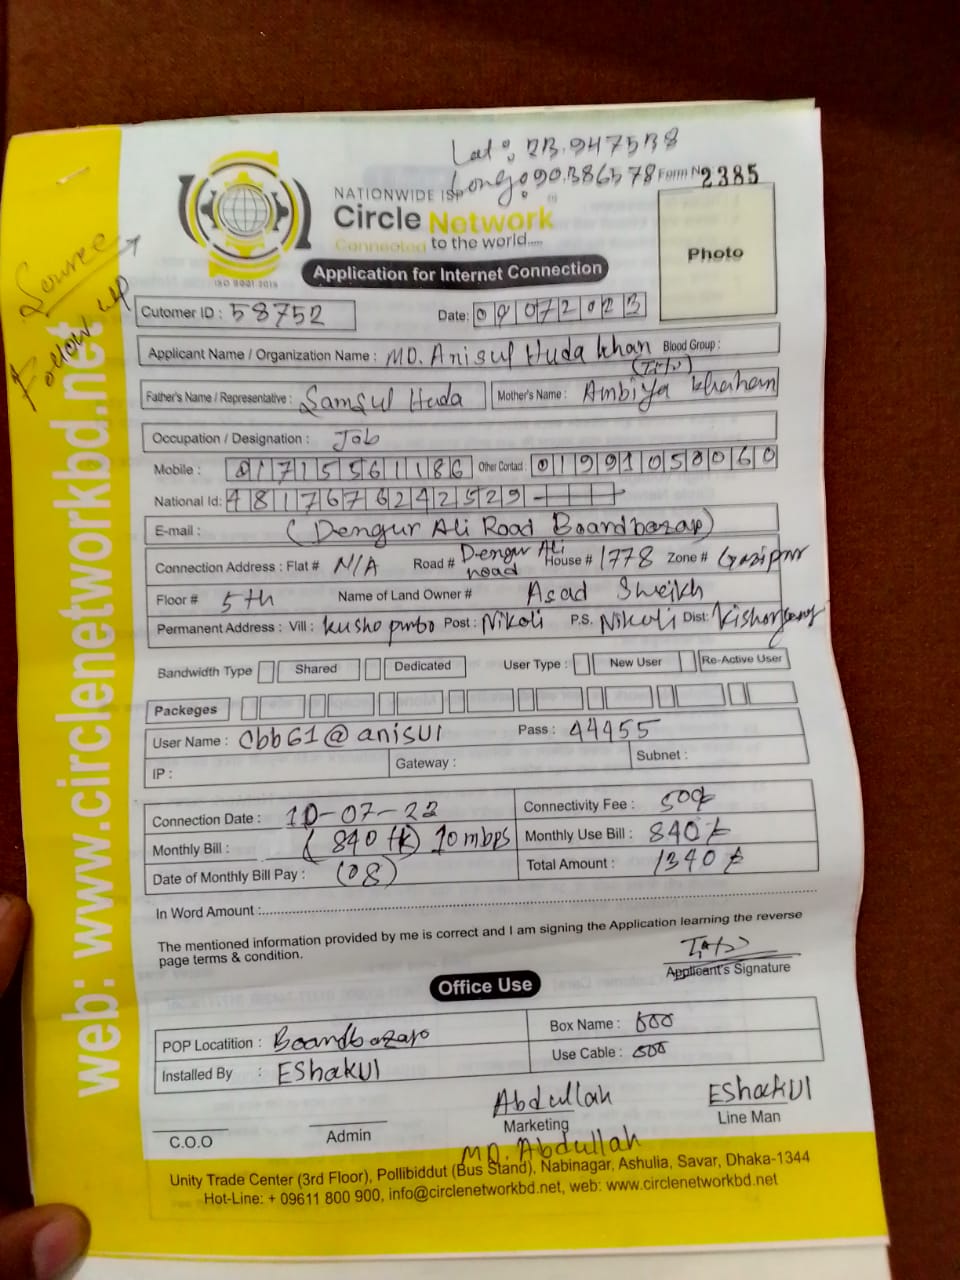 Lat: 23.947538
Long: 90.386578 Form Nº 2385
NATIONWIDE ISP
Circle Network
Connected to the world.....
ISO 9001:2015
Photo
Source
Follow up
Application for Internet Connection
Cutomer ID : 58752 Date: 09072023
Applicant Name / Organization Name : MD. Anisul Huda khan Blood Group :
(Tito)
Father's Name / Representative : Samsul Huda Mother's Name : Ambiya khanam
Occupation / Designation : Job
Mobile : 01715561186 Other Contact : 01991058060
National Id: 4817676242529
E-mail : (Dengur Ali Road Boardbazar)
Connection Address : Flat # N/A Road # Dengur Ali road House # 1778 Zone # Gazipur
Floor # 5th Name of Land Owner # Asad Sheikh
Permanent Address : Vill : Post : Nikoli P.S. Nikoli Dist:
Bandwidth Type Shared Dedicated User Type : New User Re-Active User
Packeges
User Name : cbb61@anisul Pass : 44455
IP : Gateway : Subnet :
Connection Date : 10-07-23 Connectivity Fee : 500/-
Monthly Bill : (840 tk) 10 mbps Monthly Use Bill : 840/-
Date of Monthly Bill Pay : (08) Total Amount : 1340/-
In Word Amount :
The mentioned information provided by me is correct and I am signing the Application learning the reverse
page terms & condition.
Tito
Applicant's Signature
Office Use
POP Locatition : Boardbazar Box Name :
Installed By : EShakul Use Cable :
Abdullah EShakul
C.O.O Admin Marketing Line Man
MD. Abdullah
Unity Trade Center (3rd Floor), Pollibiddut (Bus Stand), Nabinagar, Ashulia, Savar, Dhaka-1344
Hot-Line: + 09611 800 900, info@circlenetworkbd.net, web: www.circlenetworkbd.net
web: www.circlenetworkbd.net